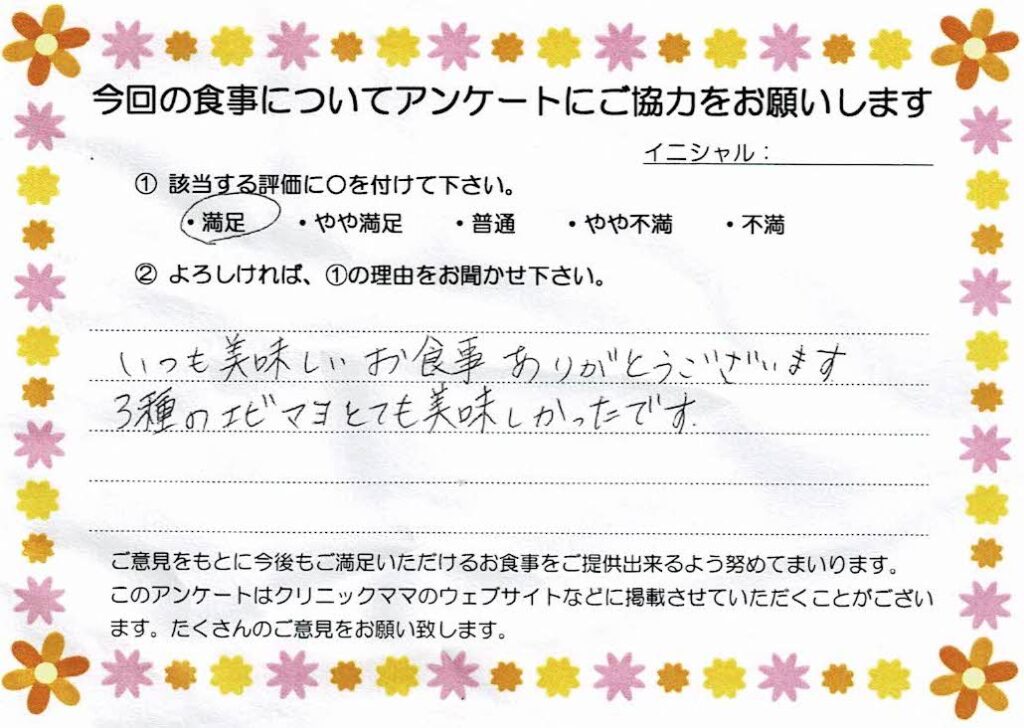 今回の食事についてアンケートにご協力をお願いします
イニシャル：
① 該当する評価に〇を付けて下さい。
・満足 ・やや満足 ・普通 ・やや不満 ・不満
② よろしければ、①の理由をお聞かせ下さい。
いつも美味しいお食事ありがとうございます
3種のエビマヨとても美味しかったです.
ご意見をもとに今後もご満足いただけるお食事をご提供出来るよう努めてまいります。
このアンケートはクリニックママのウェブサイトなどに掲載させていただくことがござい
ます。たくさんのご意見をお願い致します。